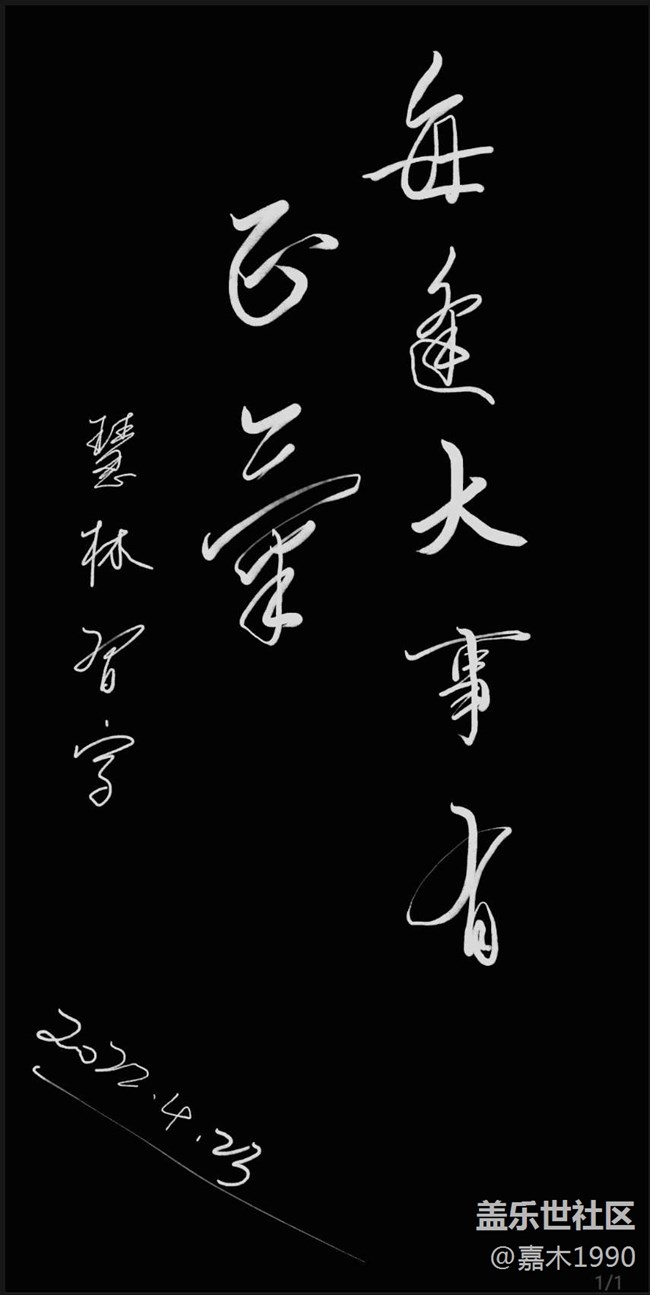 每逢大事有
正氣
慧林習字
2022.4.23
盖乐世社区
@嘉木1990
1/1